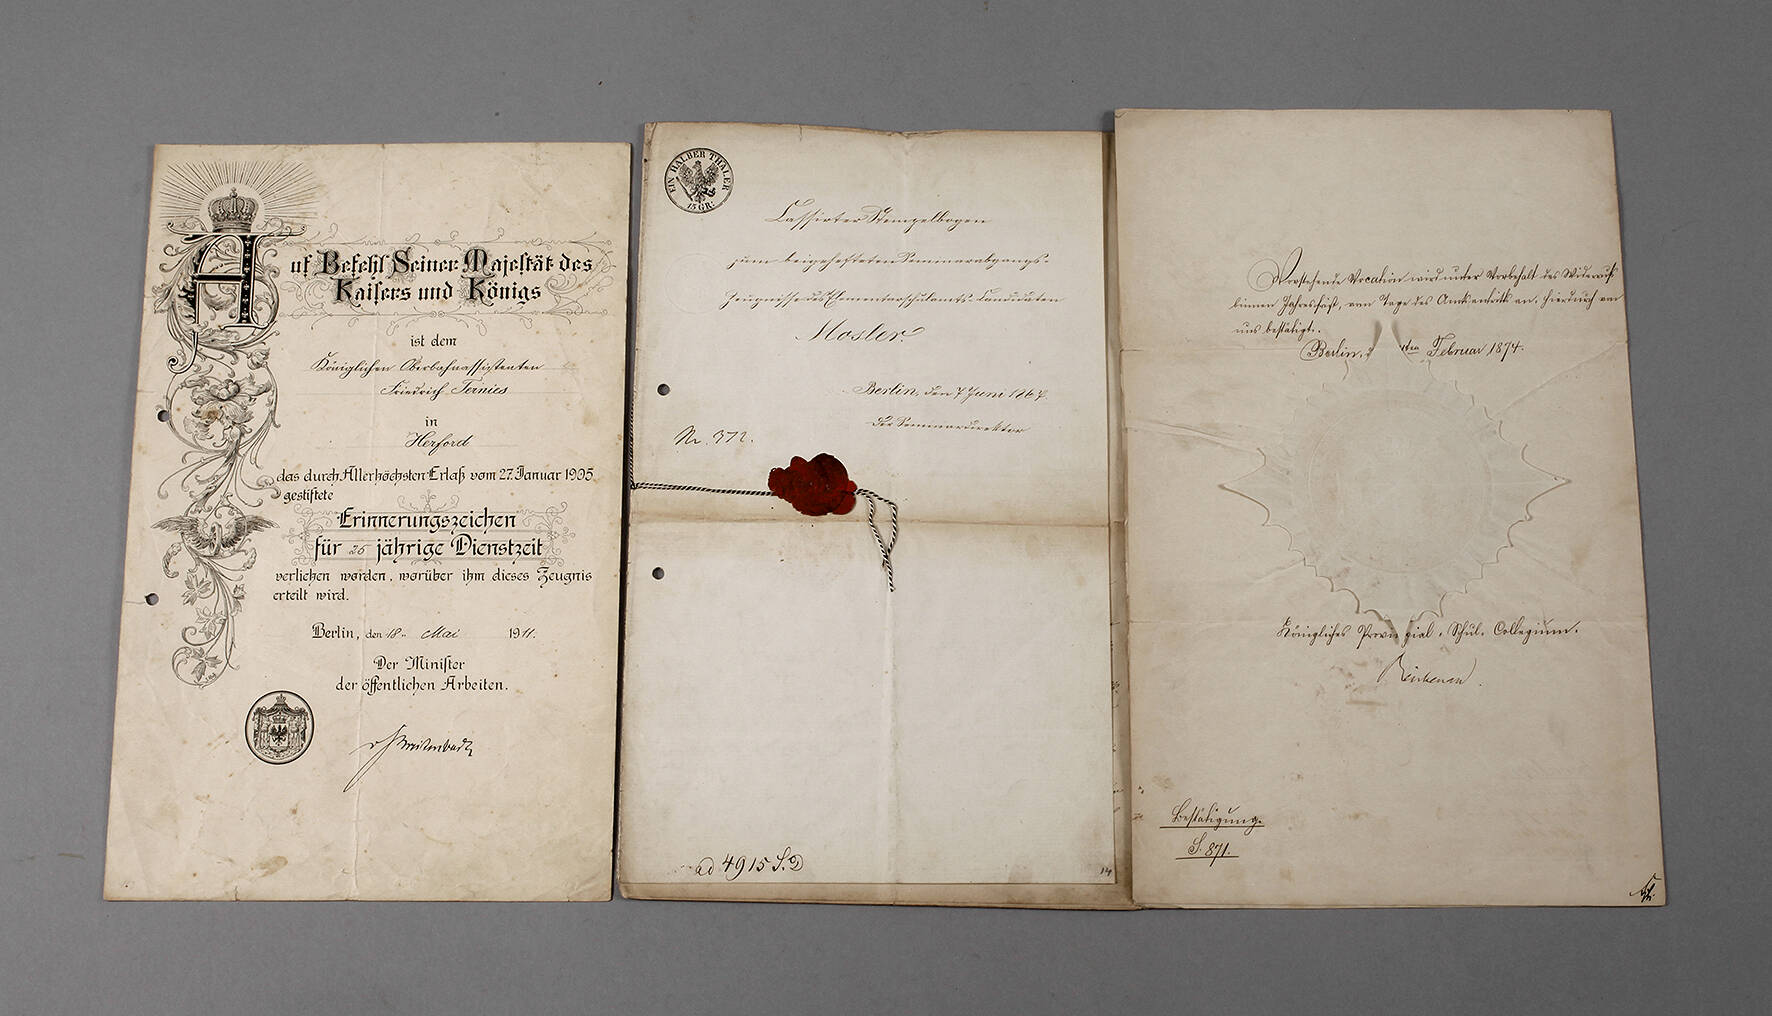 Auf Befehl Seiner Majestät des
Kaisers und Königs
ist dem
Königlichen Oberbahnassistenten
Friedrich Ternies
in
Herford
das durch Allerhöchsten Erlaß vom 27. Januar 1905
gestiftete
Erinnerungszeichen
für 25 jährige Dienstzeit
verliehen worden, worüber ihm dieses Zeugnis
erteilt wird.
Berlin, den 18. Mai 1911.
Der Minister
der öffentlichen Arbeiten.
v Breitenbach
EIN HALBER THALER
15 GR.
Cassirter Stempelbogen
zum beigehefteten Seminarabgangs-
Zeugnisse des Elementarschulamts-Candidaten
Mosler.
Berlin, den 7 Juni 1867.
Der Seminardirektor
Nr. 372.
ad 4915 S.
14
Vorstehende Vocation wird unter Vorbehalt des Widerrufs
binnen Jahresfrist, vom Tage des Amtsantritts an, hierdurch von
uns bestätigt.
Berlin, ten Februar 1874.
Königliches Provinzial-Schul-Collegium.
Reichenau.
Bestätigung.
S. 871.